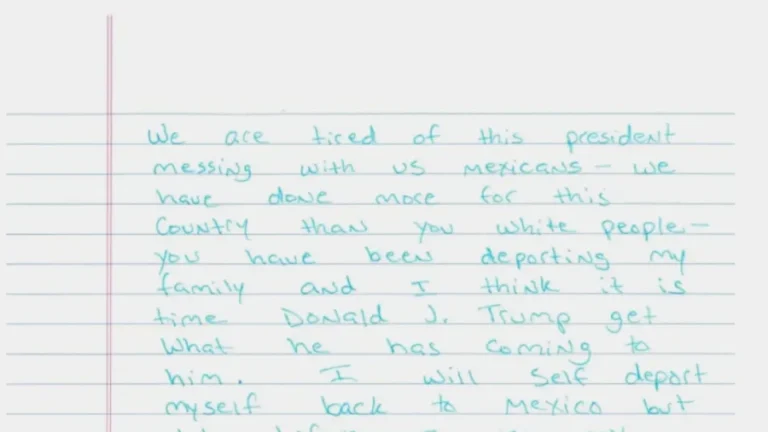 We are tired of this president
messing with us Mexicans - we
have done more for this
Country than you white people -
you have been deporting my
family and I think it is
time Donald J. Trump get
what he has coming to
him. I will self deport
myself back to Mexico but